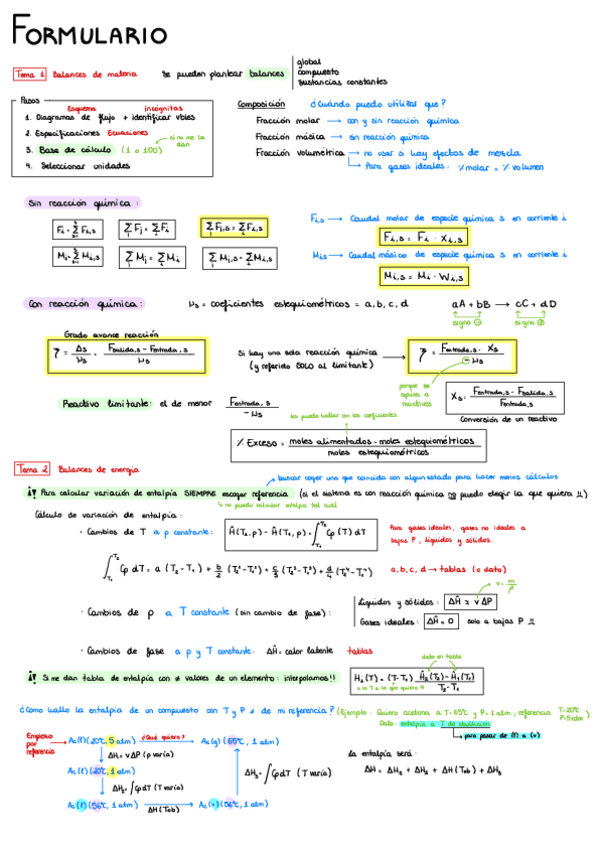 FORMULARIO
Tema 1 Balances de materia Se pueden plantear balances
global
compuesto
sustancias constantes
Pasos
Esquema incógnitas
1. Diagramas de flujo + identificar vbles
2. Especificaciones Ecuaciones
3. Base de cálculo (1 o 100) si no me la dan
4. Seleccionar unidades
Composición ¿Cuándo puedo utilizar que?
Fracción molar → con y sin reacción química
Fracción másica → sin reacción química
Fracción volumétrica → no usar si hay efectos de mezcla
Para gases ideales: % molar = % volumen
Sin reacción química:
F_i,s → Caudal molar de especie química s en corriente i
F_i,s = F_i · x_i,s
M_i,s → Caudal másico de especie química s en corriente i
M_i,s = M_i · w_i,s
Con reacción química: μs = coeficientes estequiométricos = a, b, c, d aA + bB → cC + dD
signo ⊖ signo ⊕
Grado avance reacción
Si hay una sola reacción química
(y referido SOLO al limitante)
porque se aplica a reactivos
Reactivo limitante: el de menor F_entrada,s / -μs
Conversión de un reactivo
% Exceso = moles alimentados - moles estequiométricos / moles estequiométricos
Tema 2 Balances de energía
buscar coger una que coincida con algun estado para hacer menos cálculos
¡! Para calcular variación de entalpía SIEMPRE escoger referencia (si el sistema es con reacción química no puedo elegir la que quiera !!)
no puedo calcular entalpia tal cual
Cálculo de variación de entalpía:
· Cambios de T a p constante: Ĥ(T₂,p) - Ĥ(T₁,p) = ∫ Cp (T) dT
Para gases ideales, gases no ideales a
bajas P, líquidos y sólidos.
∫ Cp dT = a (T₂-T₁) + b/2 (T₂²-T₁²) + c/3 (T₂³-T₁³) + d/4 (T₂⁴-T₁⁴) a, b, c, d → tablas (o dato)
· Cambios de p a T constante (sin cambio de fase):
Líquidos y sólidos: ΔĤ = v ΔP
Gases ideales: ΔĤ = 0 solo a bajas P !!
· Cambios de fase a p y T constante: ΔĤ = calor latente tablas
dato en tabla
¡! Si me dan tabla de entalpía con ≠ valores de un elemento: interpolamos!!
¿Como hallo la entalpía de un compuesto con T y P ≠ de mi referencia? (Ejemplo: Quiero acetona a T=65℃ y P=1 atm; referencia T=20℃ P=5 atm)
Dato: entalpía a T de ebullición
para pasar de (l) a (v)
Empiezo por referencia
Ac(l) (20℃, 5 atm) ¿Qué quiero? Ac(g) (65℃, 1 atm)
ΔH₁ = vΔP (p varía)
Ac(l) (20℃, 1 atm)
ΔH₂ = ∫Cp dT (T varía)
ΔH₃ = ∫Cp dT (T varía)
Ac(l) (56℃, 1 atm) ΔH(Teb) Ac(v) (56℃, 1 atm)
La entalpía será:
ΔH = ΔH₁ + ΔH₂ + ΔH(Teb) + ΔH₃